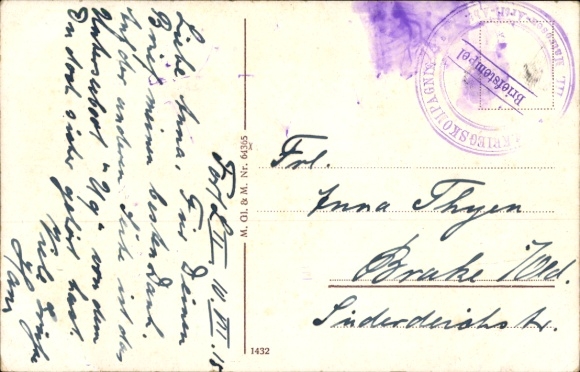 Fort L II. 10. III. 15
Liebe Anna. Für Deinen
Brief meinen besten Dank.
Auf der anderen Seite ist das
Unterseeboot "U 9" von dem
Du doch sicher gehört hast.
Viele Grüße
M. Gl. & M. Nr. 64365
1432
KRIEGSKOMPAGNIE
Briefstempel
Frl.
Anna Thyen
Brake i/Old.